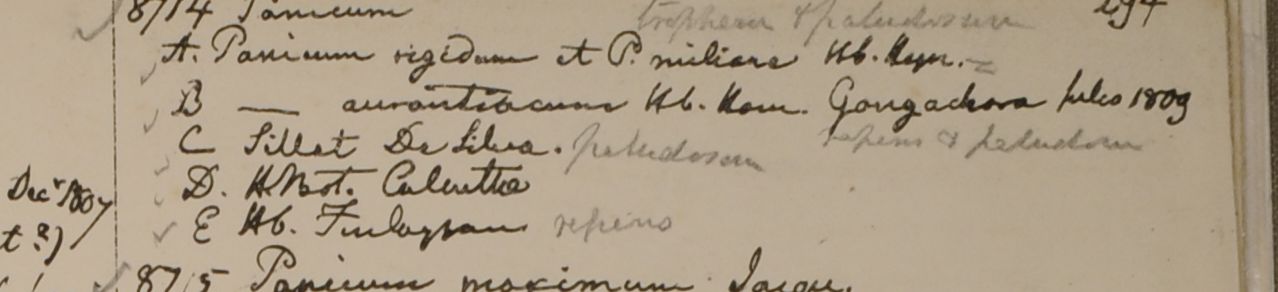 8714 Panicum 294
A. Panicum rigidum et P. miliare Hb. Heyn.
B — aurantiacum Hb. Ham. Gongachora Julio 1809
repens & paludosum
C Sillet De Silva. paludosum
D. H. Bot. Calcutta
Decr 1807
E Hb. Finlayson repens
t 2)
8715 Panicum maximum Jacqu.